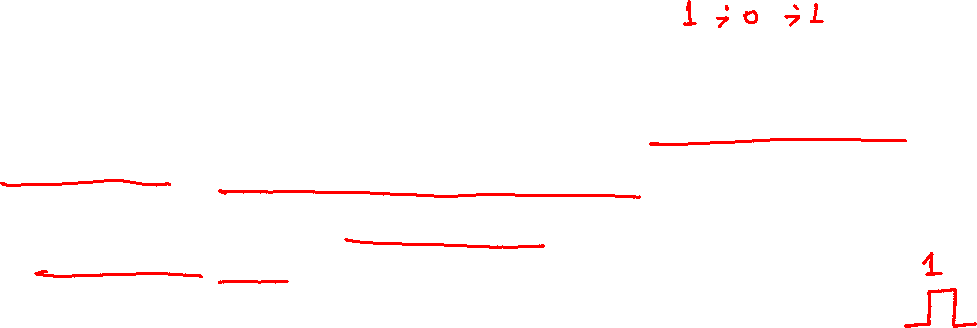 1 ; 0 ; 1
1